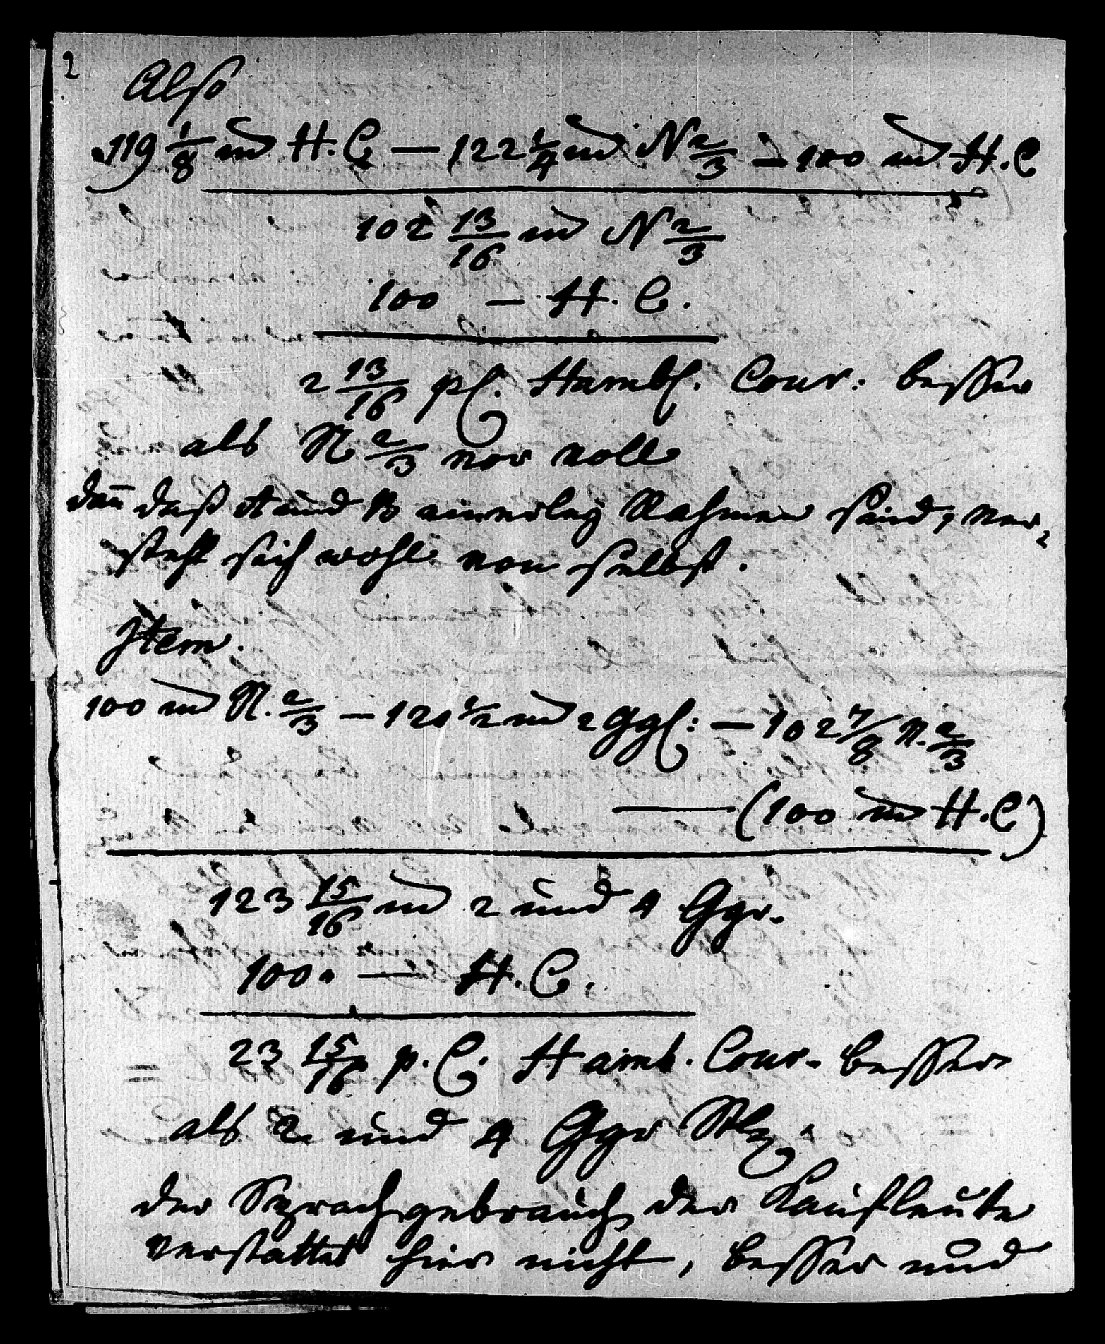 2
Also
119 1/8 m H. C. — 122 1/4 m N 2/3 — 100 m H. C
102 13/16 m N 2/3
100 — H. C.
2 13/16 pC. Hamb. Cour: besser
als N 2/3 vor voll
den daß A und B einerley Nahmen sind, ver-
steht sich wohl von selbst.
Item.
100 m N. 2/3 — 120 1/2 m 2 ggl: — 102 7/8 N. 2/3
— (100 m H. C)
123 15/16 m 2 und 4 Ggr.
100. — H. C.
23 15/16 p. C. Hamb. Cour. besser
als 2 und 4 Ggr
der Sprachgebrauch der Kaufleute
verstattet hier nicht, besser und